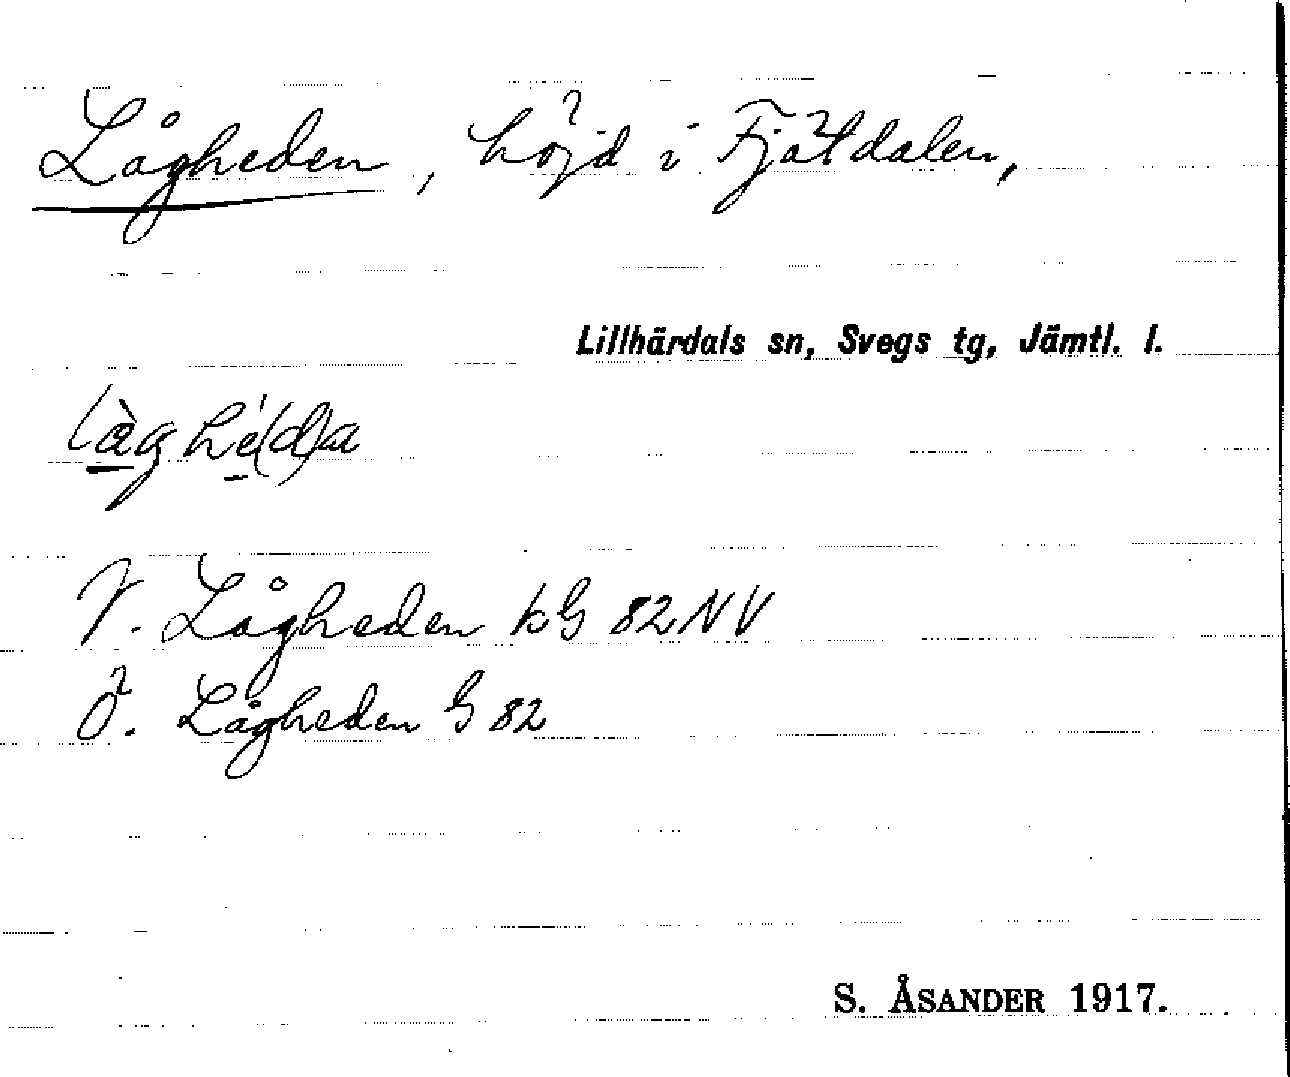 Lågheden, höjd i Fjätdalen,
Lillhärdals sn, Svegs tg, Jämtl. l.
làghé(d)a
V. Lågheden bG 82 NV
Ö. Lågheden G 82
S. ÅSANDER 1917.